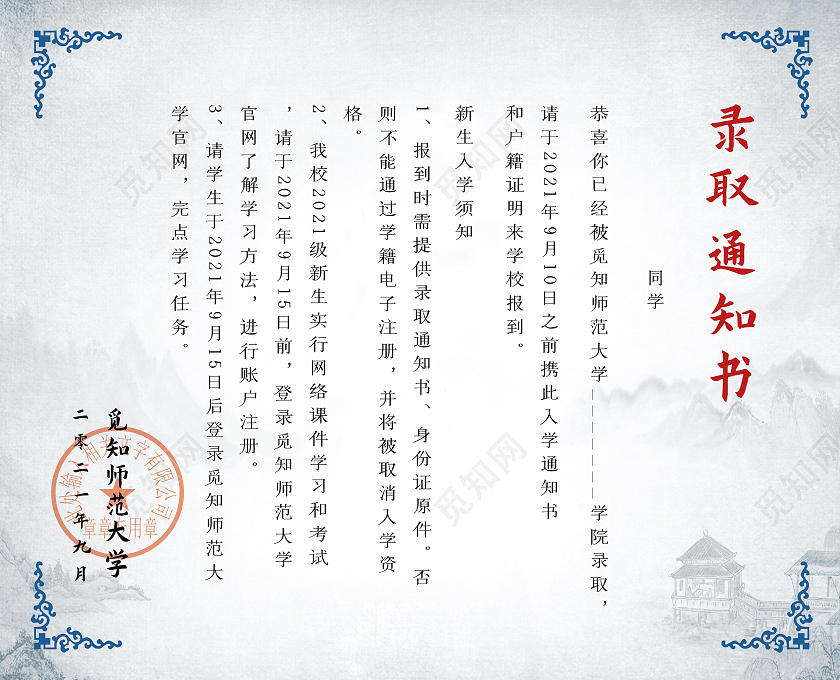 录取通知书
同学
恭喜你已经被觅知师范大学——————学院录取，
请于2021年9月10日之前携此入学通知书
和户籍证明来学校报到。
新生入学须知
1、报到时需提供录取通知书、身份证原件。否
则不能通过学籍电子注册，并将被取消入学资
格。
2、我校2021级新生实行网络课件学习和考试
，请于2021年9月15日前，登录觅知师范大学
官网了解学习方法，进行账户注册。
3、请学生于2021年9月15日后登录觅知师范大
学官网，完点学习任务。
觅知师范大学
二零二一年九月
此处输入相关文字有限公司
章章专用章
觅知网
觅知网
觅知网
觅知网
觅知网